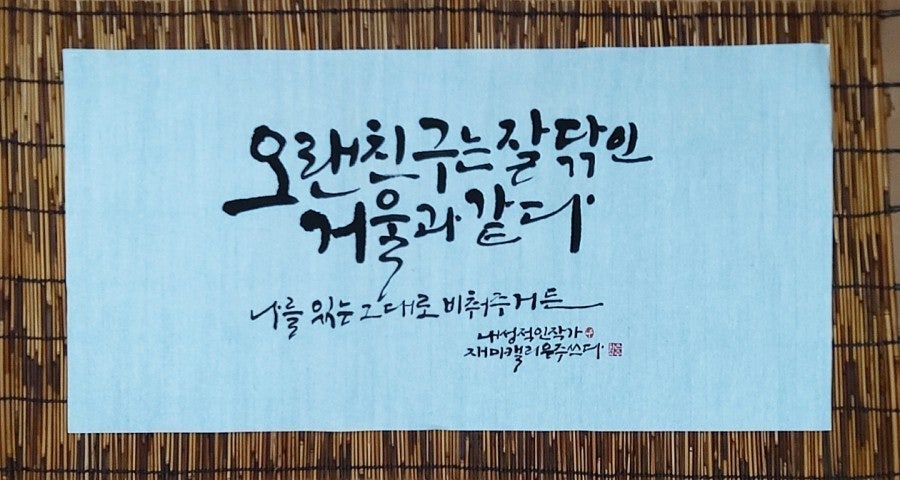 오랜친구는 잘 닦인
거울과 같다
나를 있는 그대로 비춰주거든
내성적인작가
재미캘리은주쓰다